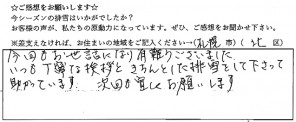 ☆ご感想をお願いします☆
今シーズンの排雪はいかがでしたか?
お客様の声が、私たちの原動力になっています。ぜひ、ご感想をお聞かせ下さい。
※差支えなければ、お住まいの地域をご記入ください→(札幌 市)(北 区)
今回もお世話になり有難うございました
いつも丁寧な挨拶ときちんとした排雪をして下さって
助かっています。次回も宜しくお願いします